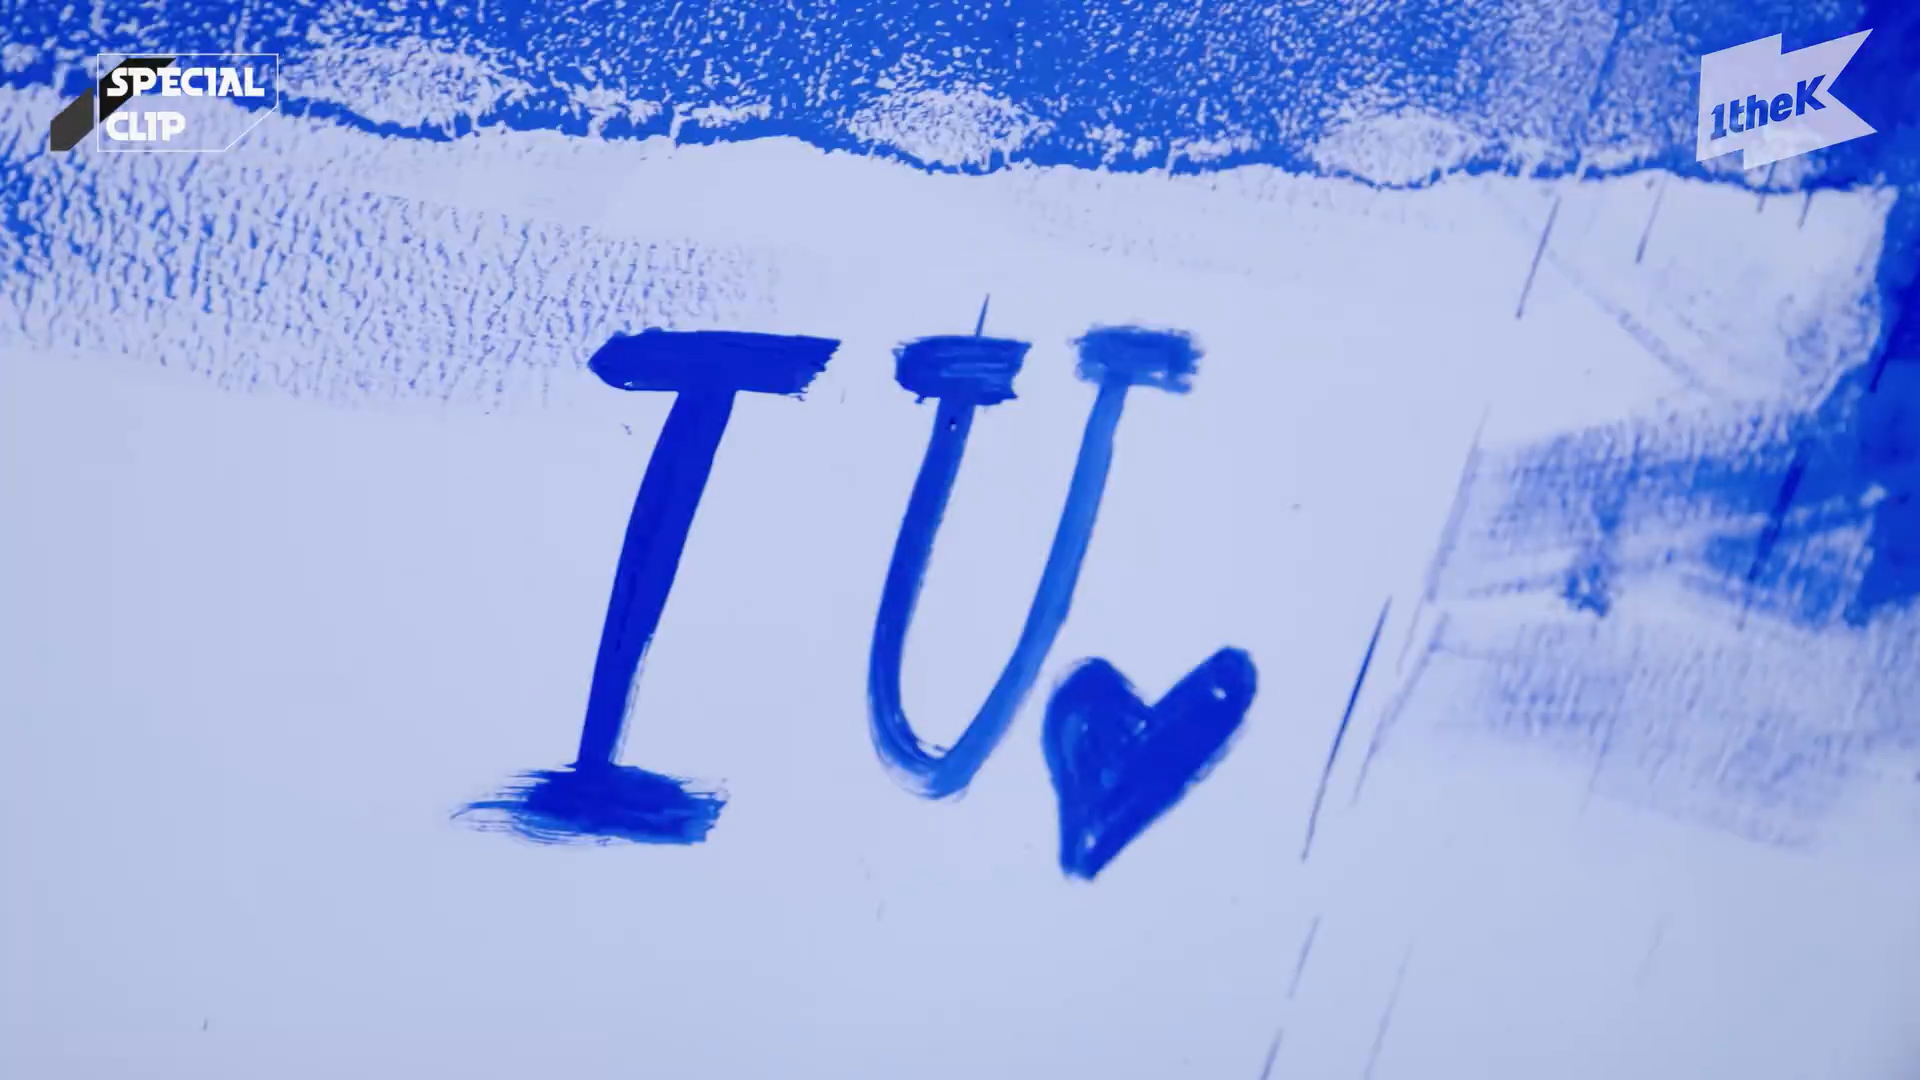 SPEC1AL
CL1P
1theK
IU